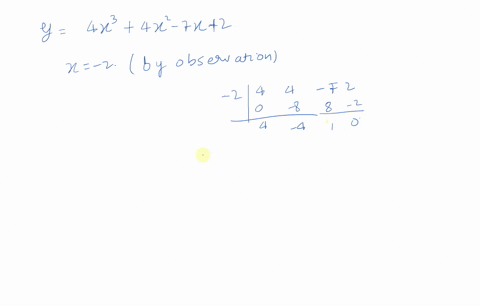 y = 4x³ + 4x² - 7x + 2
x = -2. (by observation)
-2 | 4 4 -7 2
0 -8 8 -2
4 -4 1 0